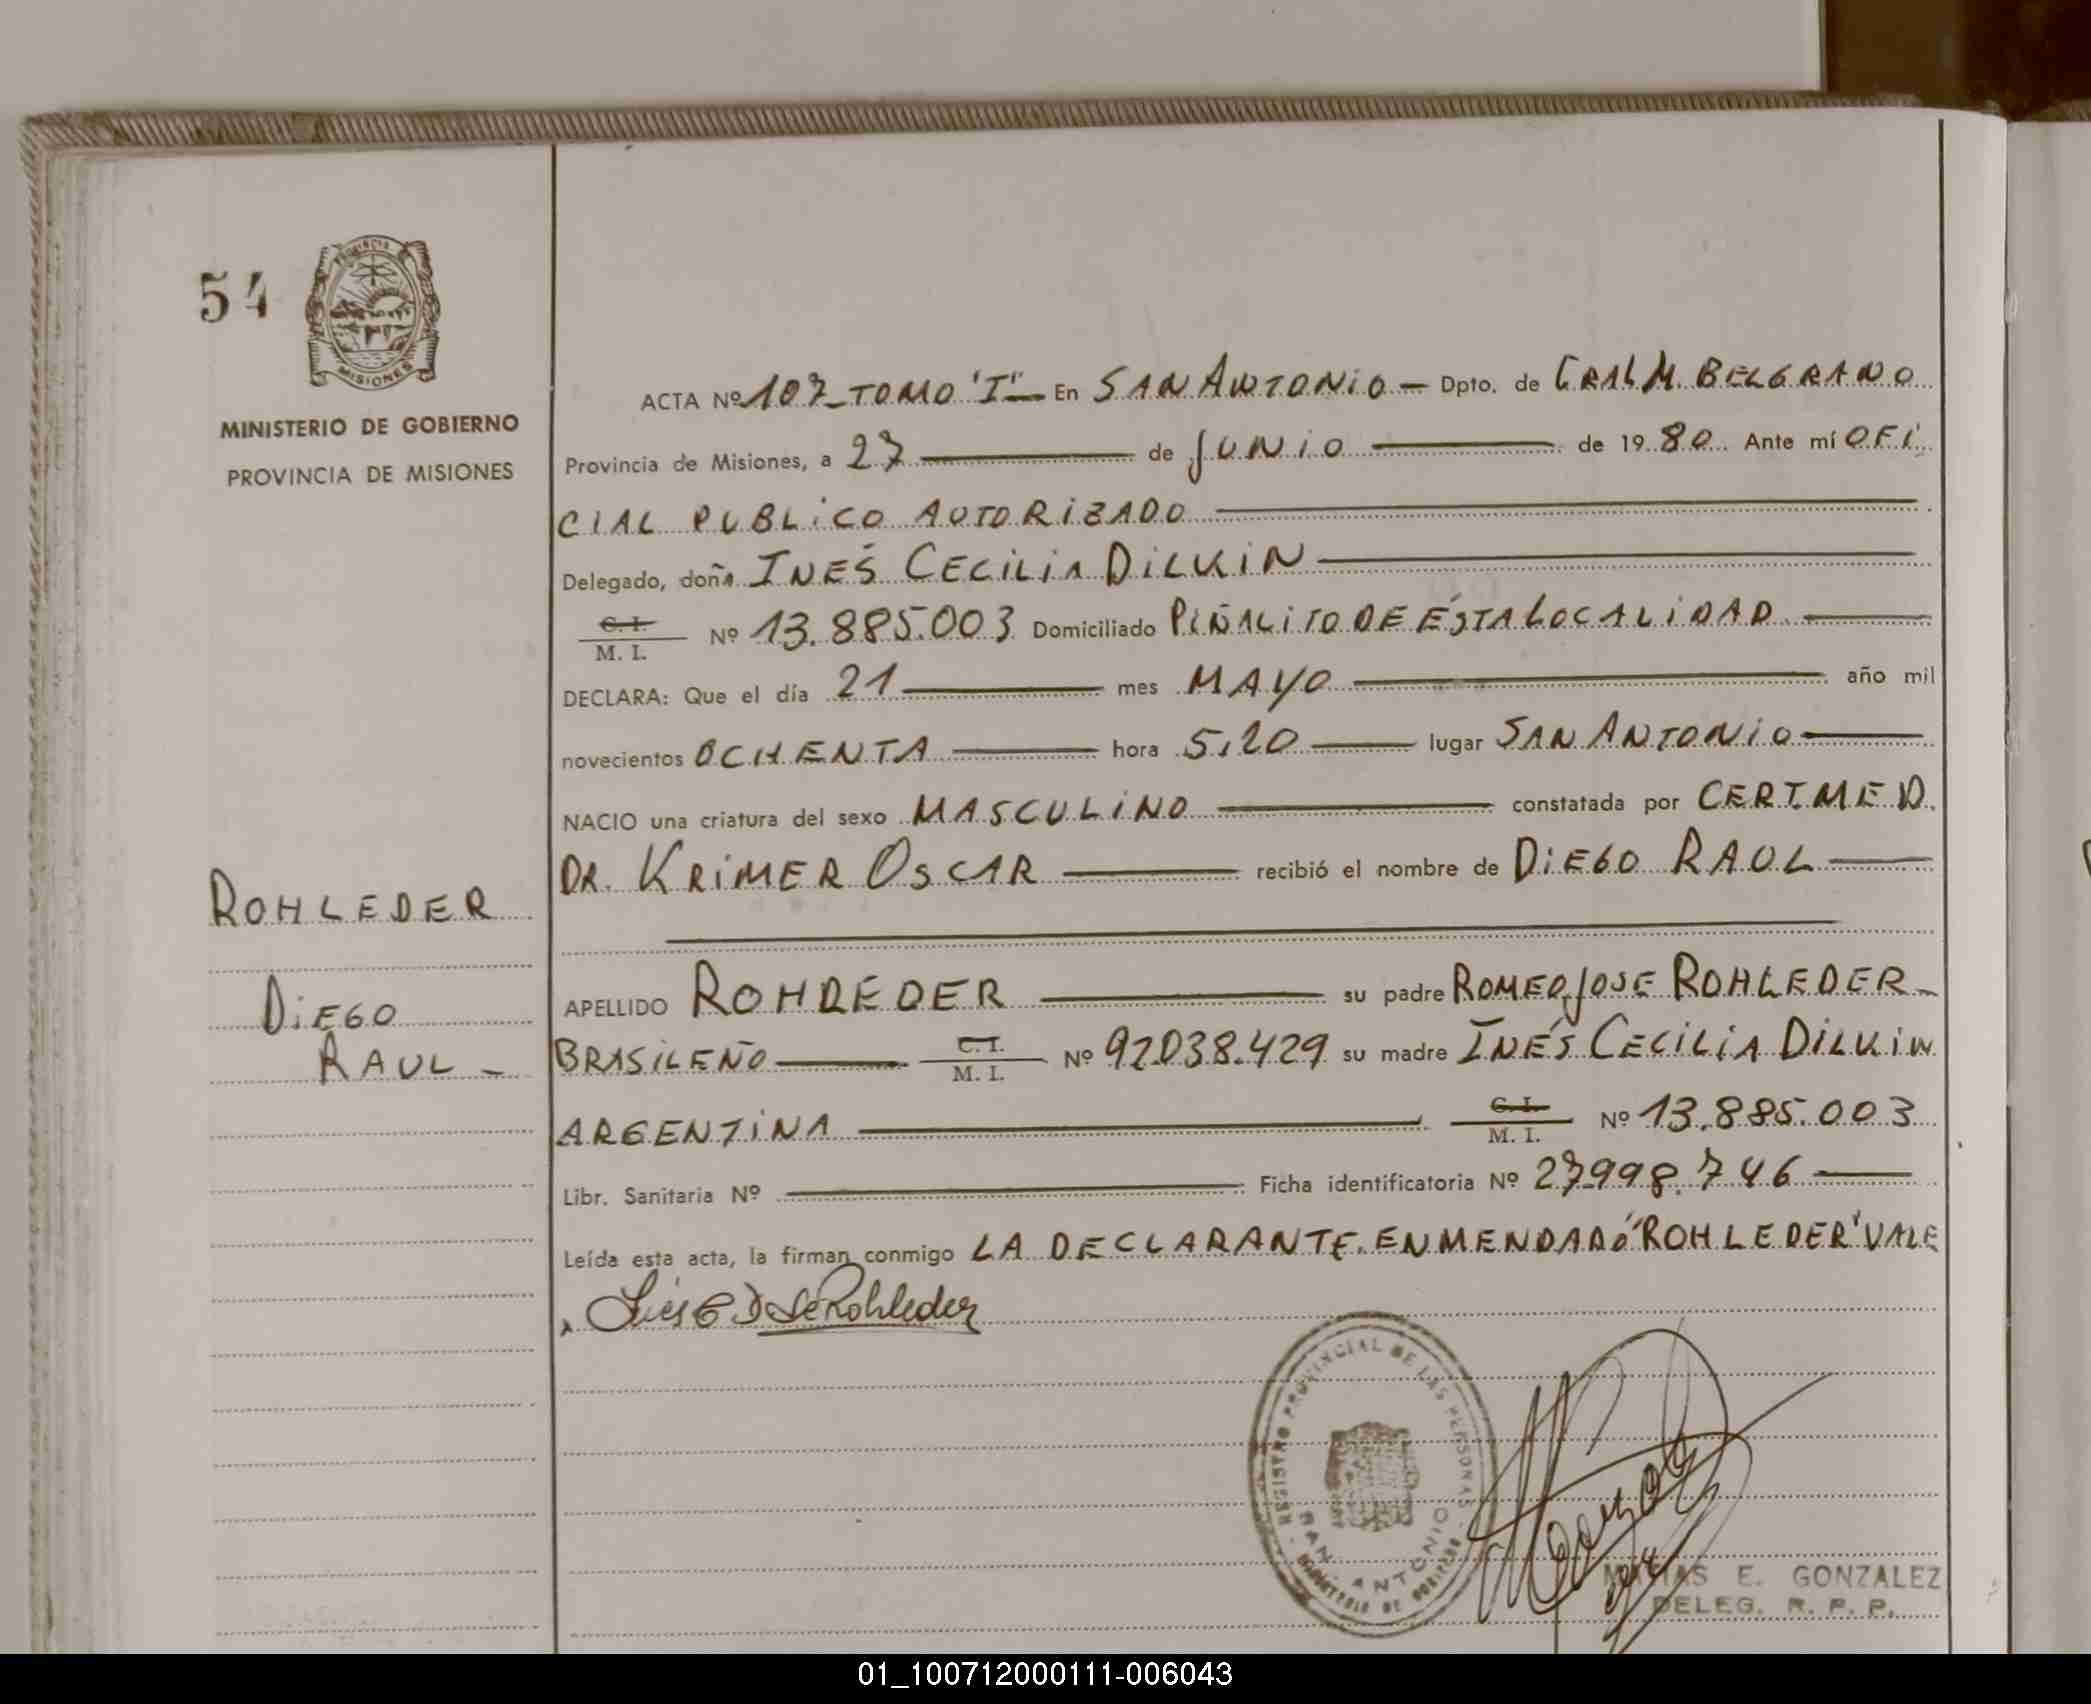 54
PROVINCIA
MISIONES
MINISTERIO DE GOBIERNO
PROVINCIA DE MISIONES
ROHLEDER
DiEGO
RAUL -
ACTA Nº 107 - TOMO "I" - En SAN ANTONiO - Dpto. de GRAL M. BELGRANO
Provincia de Misiones, a 27 de JUNiO de 1980 Ante mí OFi
CIAL PUBLiCO AUTORiZADO
Delegado, doña INÉS CECiLiA DiLKiN
C. I.
M. I. Nº 13.885.003 Domiciliado PiÑALiTO DE ÉSTA LOCALiDAD
DECLARA: Que el día 21 mes MAYO año mil
novecientos OCHENTA hora 5,20 lugar SAN ANTONiO
NACIO una criatura del sexo MASCULiNO constatada por CERT MED.
DR. KRiMER OSCAR recibió el nombre de DiEGO RAUL
APELLIDO ROHLEDER su padre ROMEO JOSE ROHLEDER -
BRASiLEÑO C. I. M. I. Nº 92.038.429 su madre INÉS CECiLiA DiLKiN
ARGENTiNA C. I. M. I. Nº 13.885.003
Libr. Sanitaria Nº Ficha identificatoria Nº 27.998.746
Leída esta acta, la firman conmigo LA DECLARANTE. ENMENDADO "ROHLEDER" VALE
Inés C D de Rohleder
REGISTRO PROVINCIAL DE LAS PERSONAS
SAN ANTONIO
MINISTERIO DE GOBIERNO
MATIAS E. GONZALEZ
DELEG. R. P. P.
01_100712000111-006043